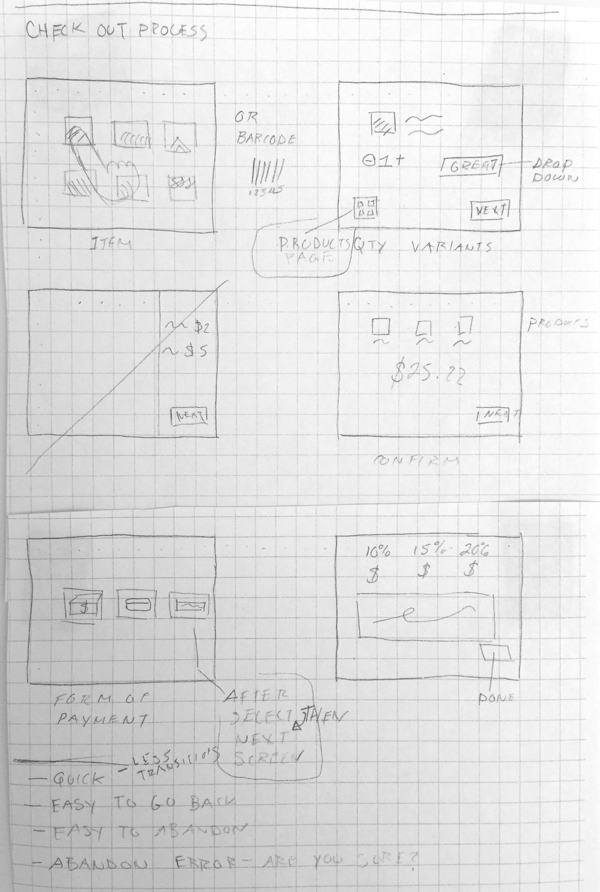 CHECK OUT PROCESS
OR
BARCODE
12345
ITEM
1+
GREAT
DROP
DOWN
NEXT
PRODUCTS
PAGE
QTY VARIANTS
$2
$5
NEXT
$25.22
NEXT
PRODUCTS
CONFIRM
$
FORM OF
PAYMENT
AFTER
SELECT, THEN
NEXT
SCREEN
10% 15% 20%
$ $ $
DONE
- QUICK - LESS
TRANSITIONS
- EASY TO GO BACK
- EASY TO ABANDON
- ABANDON ERROR - ARE YOU SURE?